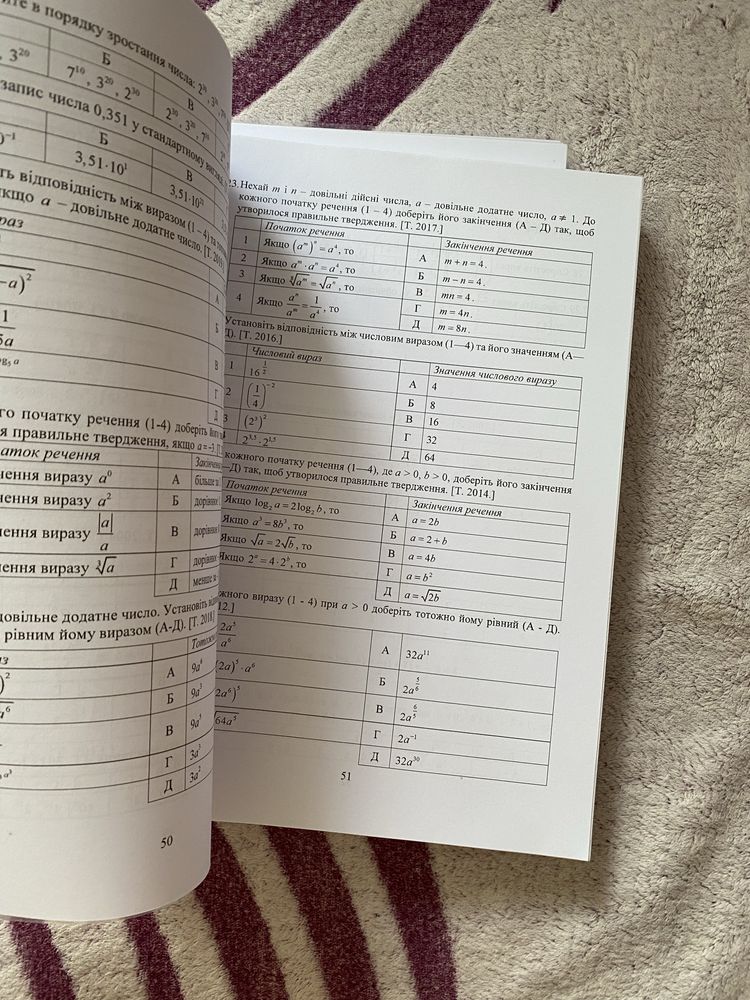 в порядку зростання числа: 2³⁰, 3²⁰,
Б
В
, 3²⁰
7¹⁰, 3²⁰, 2³⁰
2³⁰, 3²⁰, 7¹⁰
запис числа 0,351 у стандартному
Б
В
3,51·10¹
відповідність між виразом (1–4) та
a – довільне додатне число. [Т. 2019
−a)²
А
Б
В
Г
Д
початку речення (1-4) доберіть його
правильне твердження, якщо a=−3.
Закінчення
виразу a⁰
А
більше за
виразу a²
Б
дорівнює
виразу |a|/a
В
дорівнює
виразу ∛a
Г
дорівнює
Д
менше за
довільне додатне число. Установіть
рівним йому виразом (А-Д). [Т. 2018.]
А
9a⁴
Б
9a³
В
9a⁵
Г
3a³
Д
3a²
50
23. Нехай m і n – довільні дійсні числа, a – довільне додатне число, a ≠ 1. До
кожного початку речення (1 – 4) доберіть його закінчення (А – Д) так, щоб
утворилося правильне твердження. [Т. 2017.]
Початок речення
Закінчення речення
1
Якщо (aᵐ)ⁿ = a⁴, то
А
m + n = 4.
2
Якщо aᵐ · aⁿ = a⁴, то
Б
m − n = 4.
3
Якщо ⁸√aᵐ = √aⁿ, то
В
mn = 4.
4
Якщо aⁿ/aᵐ = 1/a⁴, то
Г
m = 4n.
Д
m = 8n.
Установіть відповідність між числовим виразом (1—4) та його значенням (А—
Д). [Т. 2016.]
Числовий вираз
Значення числового виразу
1
16^(1/2)
А
4
2
(1/4)⁻²
Б
8
3
(2³)²
В
16
2^3,5 · 2^1,5
Г
32
Д
64
кожного початку речення (1—4), де a > 0, b > 0, доберіть його закінчення
—Д) так, щоб утворилося правильне твердження. [Т. 2014.]
Початок речення
Закінчення речення
Якщо log₂ a = 2log₂ b, то
А
a = 2b
Якщо a³ = 8b³, то
Б
a = 2 + b
Якщо √a = 2√b, то
В
a = 4b
Якщо 2ᵃ = 4 · 2ᵇ, то
Г
a = b²
Д
a = √2b
виразу (1 - 4) при a > 0 доберіть тотожно йому рівний (А - Д).
12.]
2a⁵/a⁶
А
32a¹¹
(2a)⁵ · a⁶
Б
2a^(5/6)
2a⁶)⁵
В
2a^(6/5)
64a⁵
Г
2a⁻¹
Д
32a³⁰
51